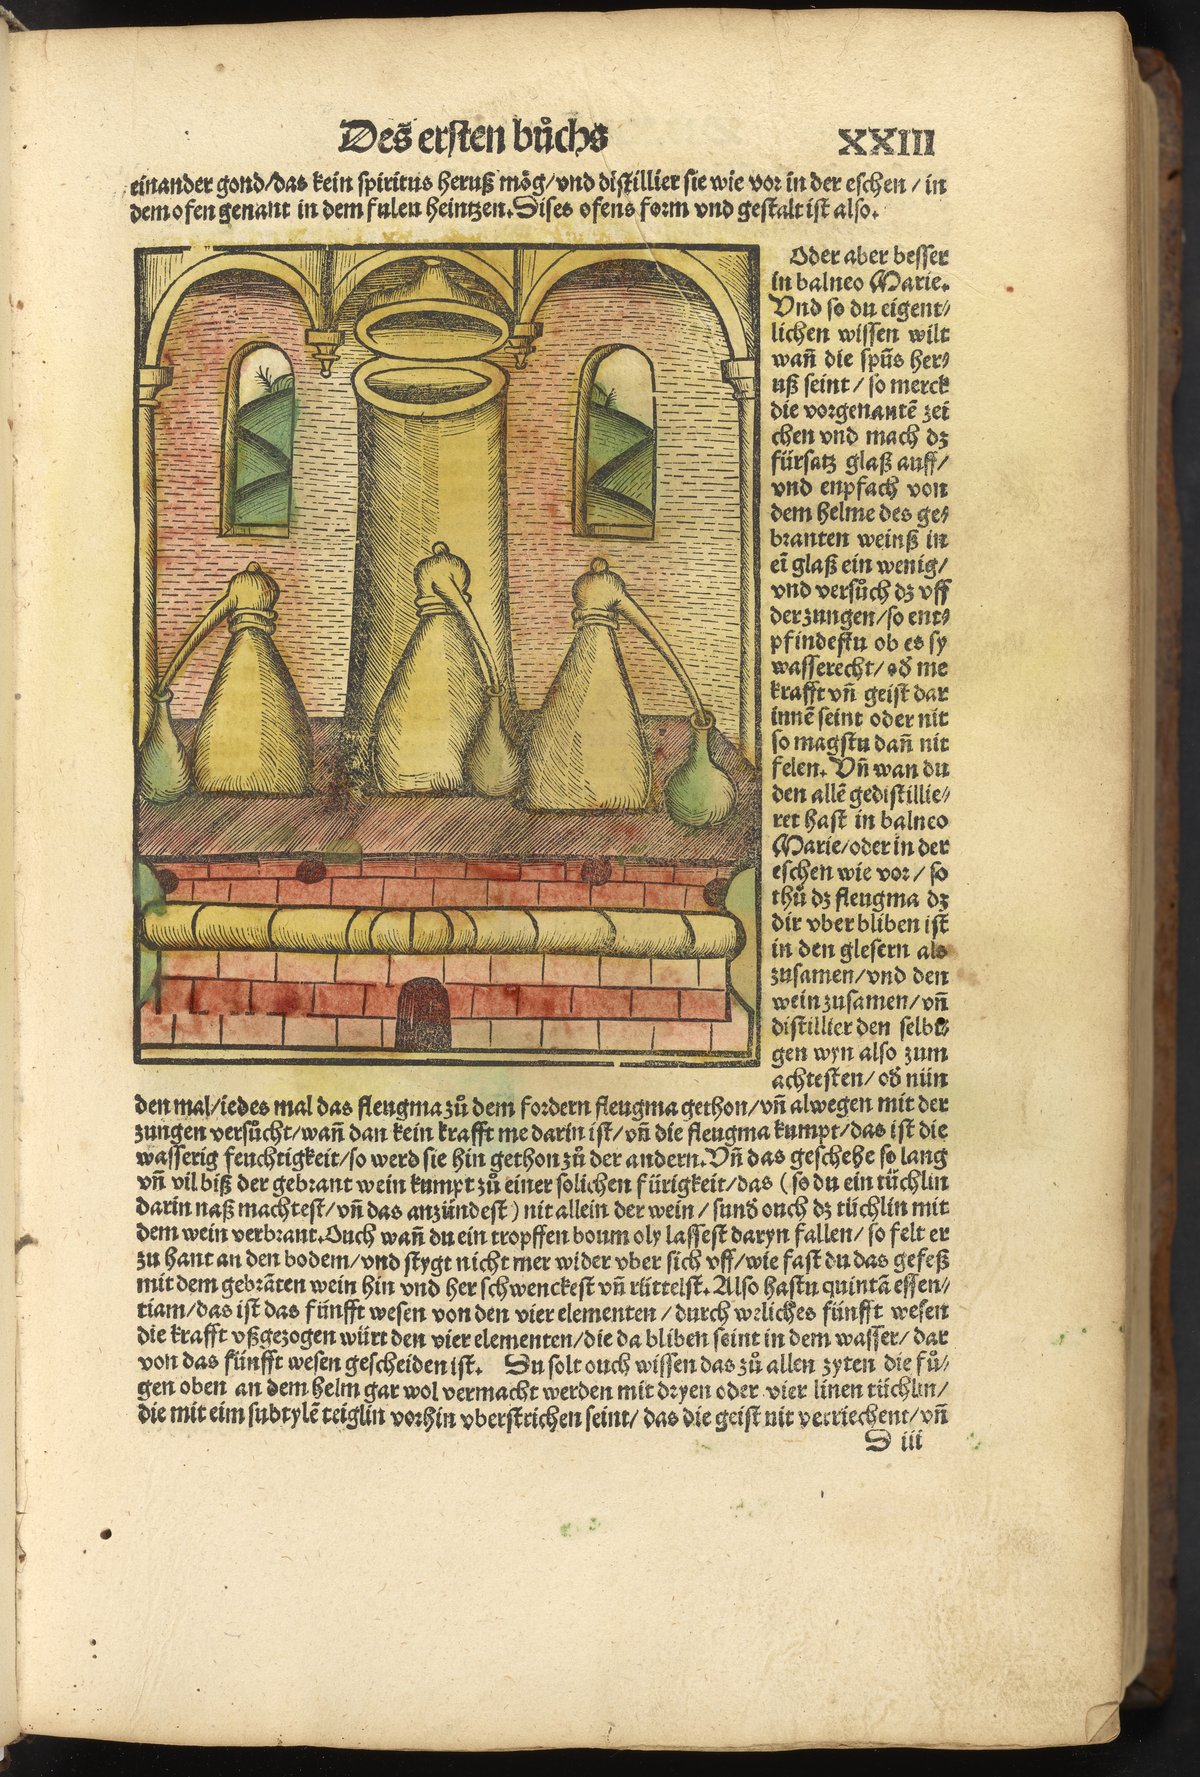 Des ersten bůchs
XXIII
einander gond/das kein spiritus heruß mög/vnd distillier sie wie vor in der eschen / in
dem ofen genant in dem fulen heintzen. Dises ofens form vnd gestalt ist also.
Oder aber besser
in balneo Marie.
Vnd so du eigent⸗
lichen wissen wilt
wañ die spũs her⸗
uß seint / so merck
die vorgenantẽ zei
chen vnd mach dz
fürsatz glaß auff/
vnd enpfach von
dem helme des ge⸗
branten weinß in
eĩ glaß ein wenig/
vnd versůch dz vff
der zungen/so ent⸗
pfindestu ob es sy
wasserecht/ od̃ me
krafft vñ geist dar
innẽ seint oder nit
so magstu dañ nit
felen. Vñ wan du
den allẽ gedistillie⸗
ret hast in balneo
Marie/oder in der
eschen wie vor / so
thů dz fleugma dz
dir vber bliben ist
in den glesern als
zusamen/vnd den
wein zusamen/vñ
distillier den selbi⸗
gen wyn also zum
achtesten/ od̃ nün
den mal/iedes mal das fleugma zů dem fordern fleugma gethon/vñ alwegen mit der
zungen versůcht/wañ dan kein krafft me darin ist/vñ die fleugma kumpt/das ist die
wasserig feuchtigkeit/so werd sie hin gethon zů der andern. Vñ das geschehe so lang
vñ vil biß der gebrant wein kumpt zů einer solichen fürigkeit/das ( so du ein tüchlin
darin naß machtest/vñ das anzündest ) nit allein der wein / sund̃ ouch dz tüchlin mit
dem wein verbrant. Ouch wañ du ein tropffen boum oly lassest daryn fallen/ so felt er
zu hant an den bodem/vnd stygt nicht mer wider vber sich vff/wie fast du das gefeß
mit dem gebrãten wein hin vnd her schwenckest vñ rüttelst. Also hastu quintã essen⸗
tiam/das ist das fünfft wesen von den vier elementen / durch weliches fünfft wesen
die krafft vßgezogen würt den vier elementen/die da bliben seint in dem wasser/ dar
von das fünfft wesen gescheiden ist. Du solt ouch wissen das zů allen zyten die fů⸗
gen oben an dem helm gar wol vermacht werden mit dryen oder vier linen tüchlin/
die mit eim subtylẽ teiglin vorhin vberstrichen seint/ das die geist nit verriechent/vñ
D iii